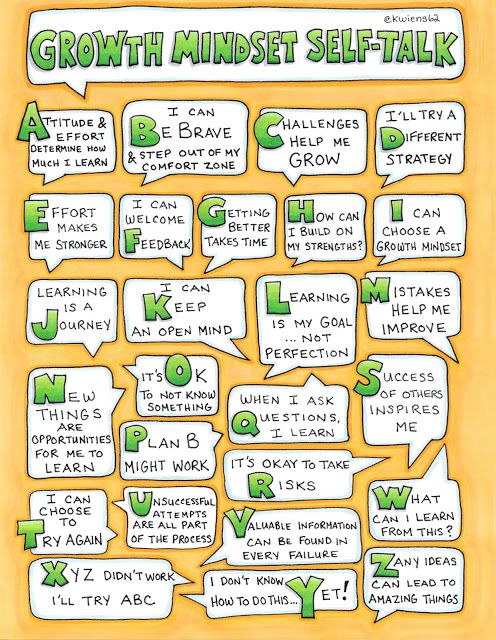 @kwiens62
GROWTH MINDSET SELF-TALK
ATTITUDE &
EFFORT
DETERMINE HOW
MUCH I LEARN
I CAN
BE BRAVE
& STEP OUT OF MY
COMFORT ZONE
CHALLENGES
HELP ME
GROW
I'LL TRY A
DIFFERENT
STRATEGY
EFFORT
MAKES
ME STRONGER
I CAN
WELCOME
FEEDBACK
GETTING
BETTER
TAKES TIME
HOW CAN
I BUILD ON
MY STRENGTHS?
I CAN
CHOOSE A
GROWTH MINDSET
LEARNING
IS A
JOURNEY
I CAN
KEEP
AN OPEN MIND
LEARNING
IS MY GOAL
...NOT
PERFECTION
MISTAKES
HELP ME
IMPROVE
NEW
THINGS
ARE
OPPORTUNITIES
FOR ME TO
LEARN
IT'S OK
TO NOT KNOW
SOMETHING
PLAN B
MIGHT WORK
WHEN I ASK
QUESTIONS,
I LEARN
IT'S OKAY TO TAKE
RISKS
SUCCESS
OF OTHERS
INSPIRES
ME
I CAN
CHOOSE
TO
TRY AGAIN
UNSUCCESSFUL
ATTEMPTS
ARE ALL PART
OF THE PROCESS
VALUABLE INFORMATION
CAN BE FOUND IN
EVERY FAILURE
WHAT
CAN I LEARN
FROM THIS?
XYZ DIDN'T WORK
I'LL TRY ABC
I DON'T KNOW
HOW TO DO THIS... YET!
ZANY IDEAS
CAN LEAD TO
AMAZING THINGS